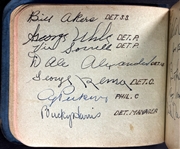 Bill Akers DET. SS.
George Uhle DET. P.
Vic Sorrell DET. P.
Dale Alexander
George DET. O.
Cy Perkins PHIL. C
Bucky Harris DET. MANAGER